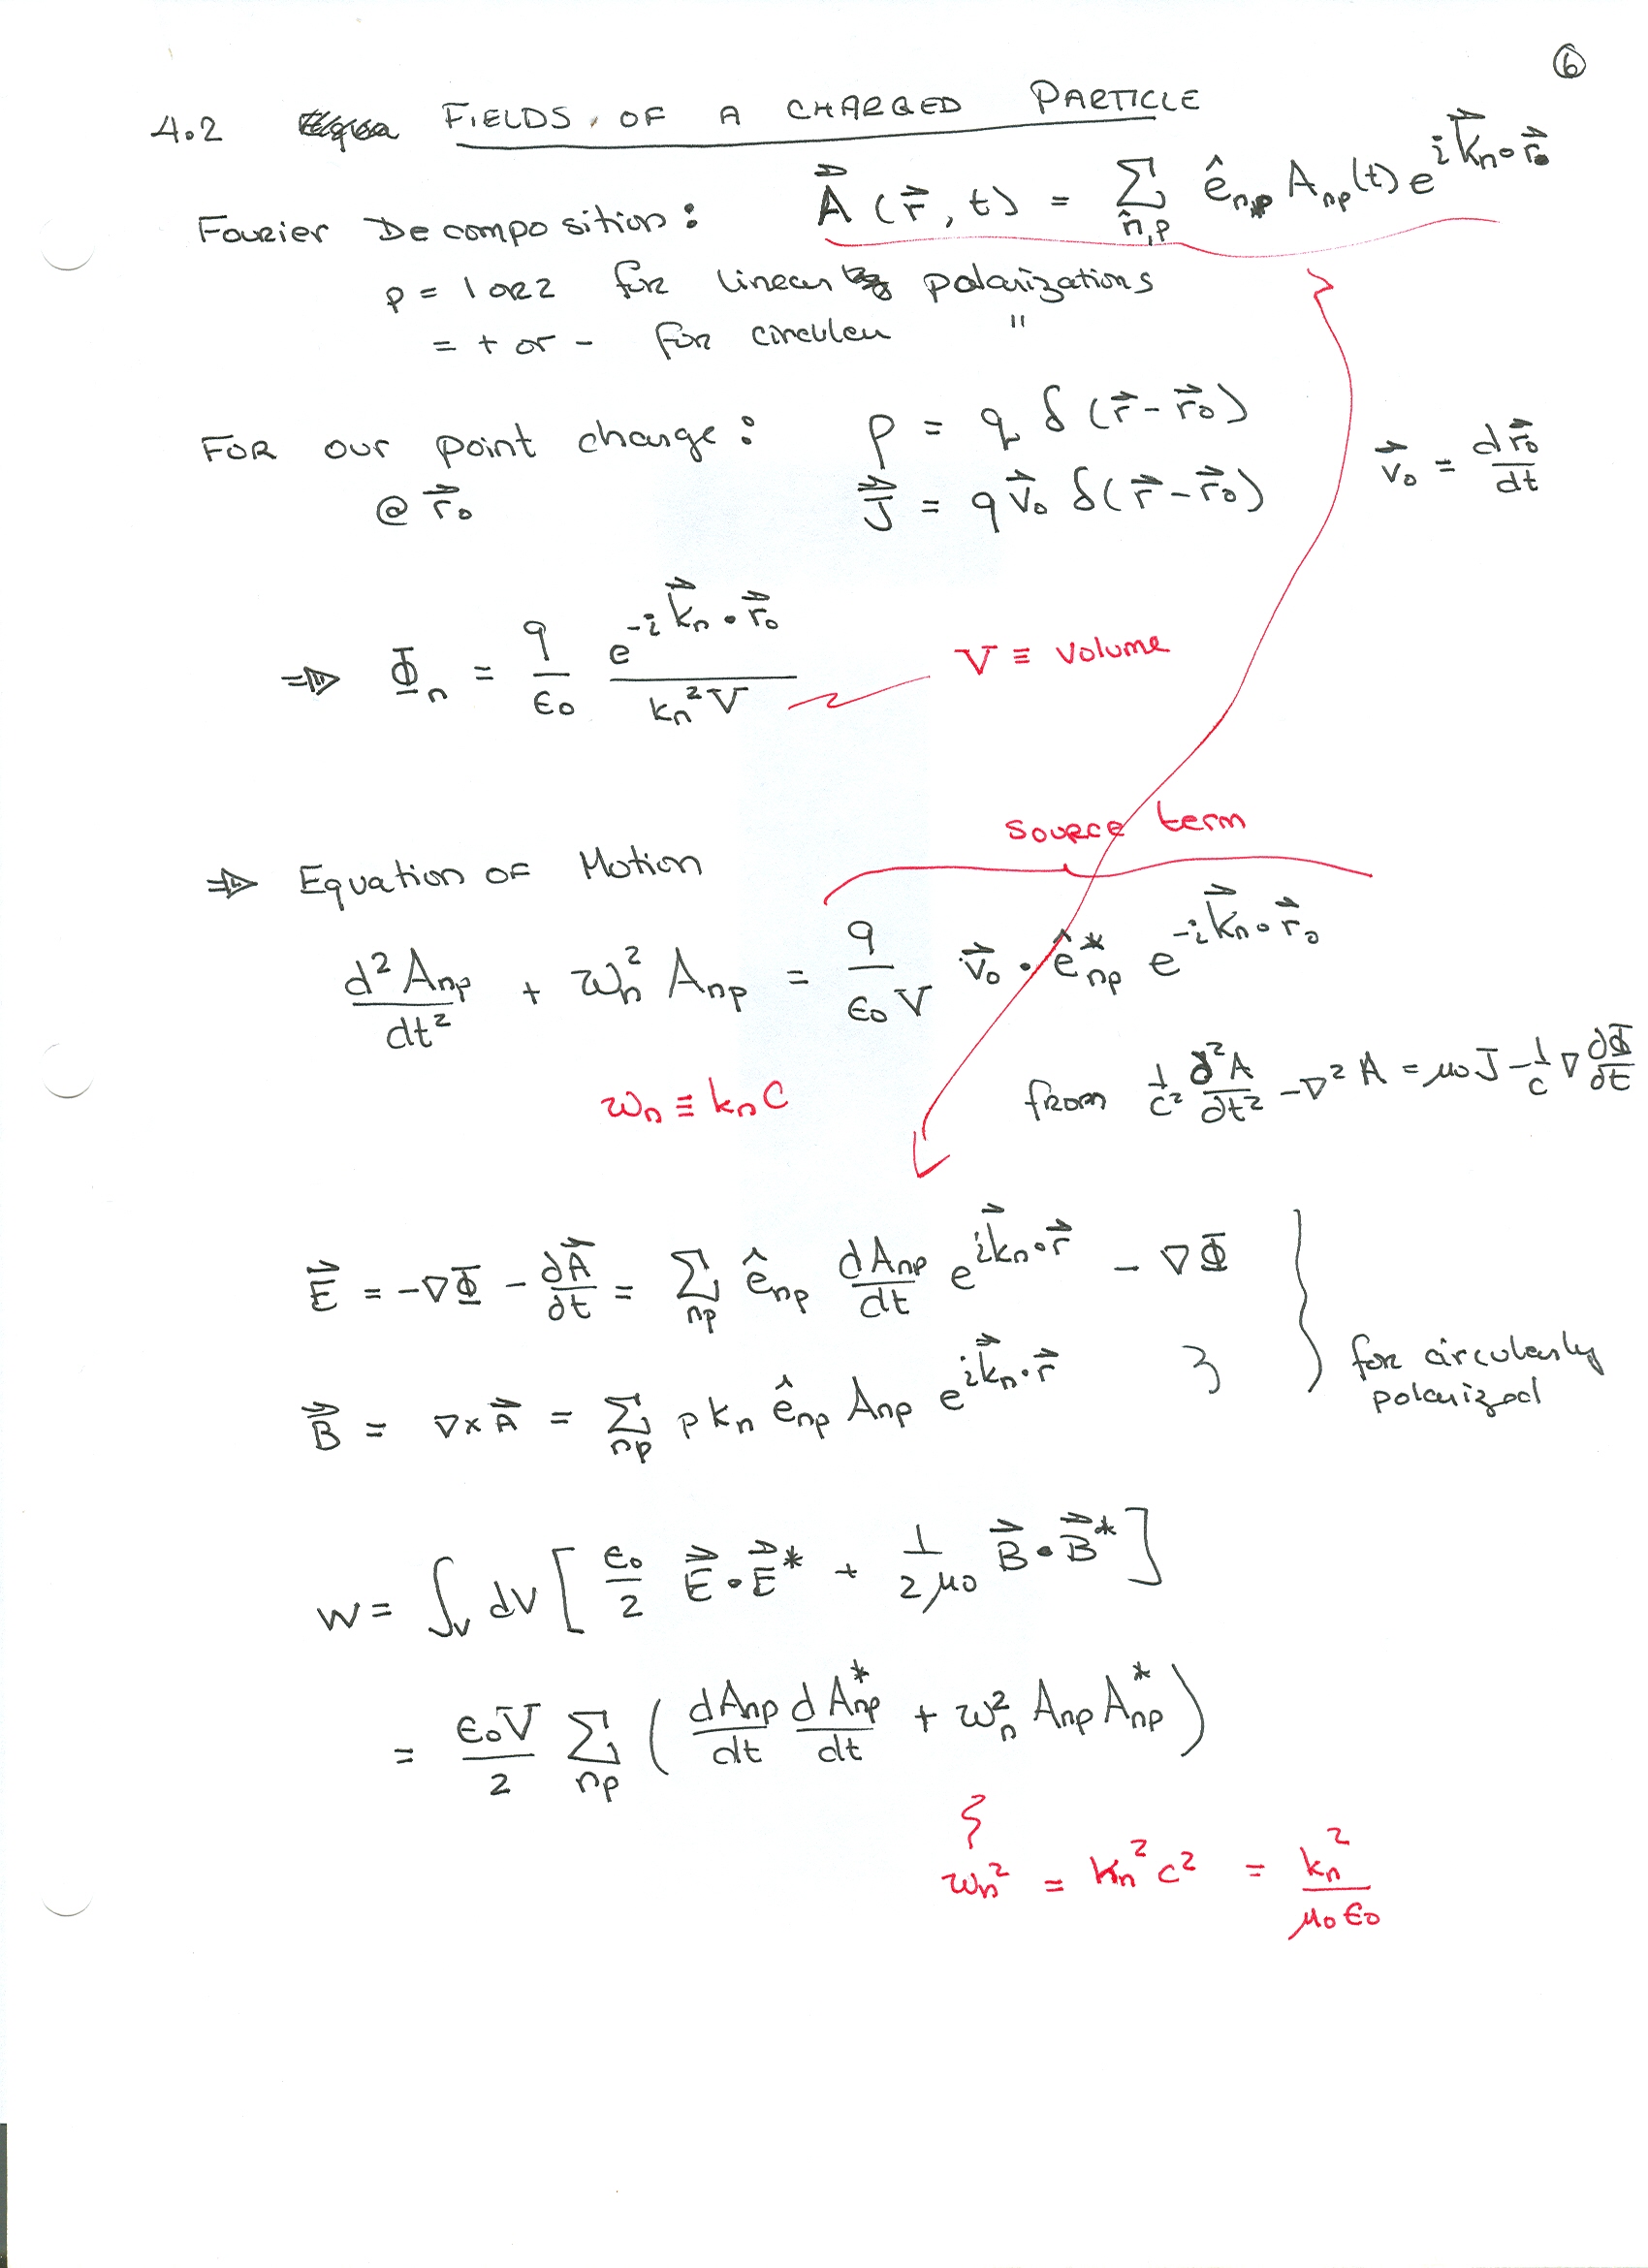 ⑥
4.2 FIELDS OF A CHARGED PARTICLE
Fourier Decomposition: A⃗(r⃗, t) = Σ_{n̂,p} ê_{np} A_{np}(t) e^{i k⃗_n · r⃗}
p = 1 or 2 for linear polarizations
= + or - for circular "
FOR our point charge: ρ = q δ(r⃗ - r⃗₀)
@ r⃗₀ J⃗ = q v⃗₀ δ(r⃗ - r⃗₀) v⃗₀ = dr⃗₀/dt
⇒ Φ_n = q/ε₀ e^{-i k⃗_n · r⃗₀}/(k_n² V) V ≡ Volume
source term
⇒ Equation OF Motion
d²A_{np}/dt² + ω_n² A_{np} = q/(ε₀V) v⃗₀ · ê*_{np} e^{-i k⃗_n · r⃗₀}
ω_n ≡ k_n c
from 1/c² ∂²A/∂t² - ∇²A = μ₀J - 1/c ∇ ∂Φ/∂t
E⃗ = -∇Φ - ∂A⃗/∂t = Σ_{np} ê_{np} dA_{np}/dt e^{i k⃗_n · r⃗} - ∇Φ
B⃗ = ∇×A⃗ = Σ_{np} p k_n ê_{np} A_{np} e^{i k⃗_n · r⃗} } for circularly
polarized
W = ∫_V dV [ ε₀/2 E⃗ · E⃗* + 1/(2μ₀) B⃗ · B⃗* ]
= ε₀V/2 Σ_{np} ( dA_{np}/dt dA*_{np}/dt + ω_n² A_{np} A*_{np} )
ω_n² = k_n² c² = k_n²/(μ₀ε₀)